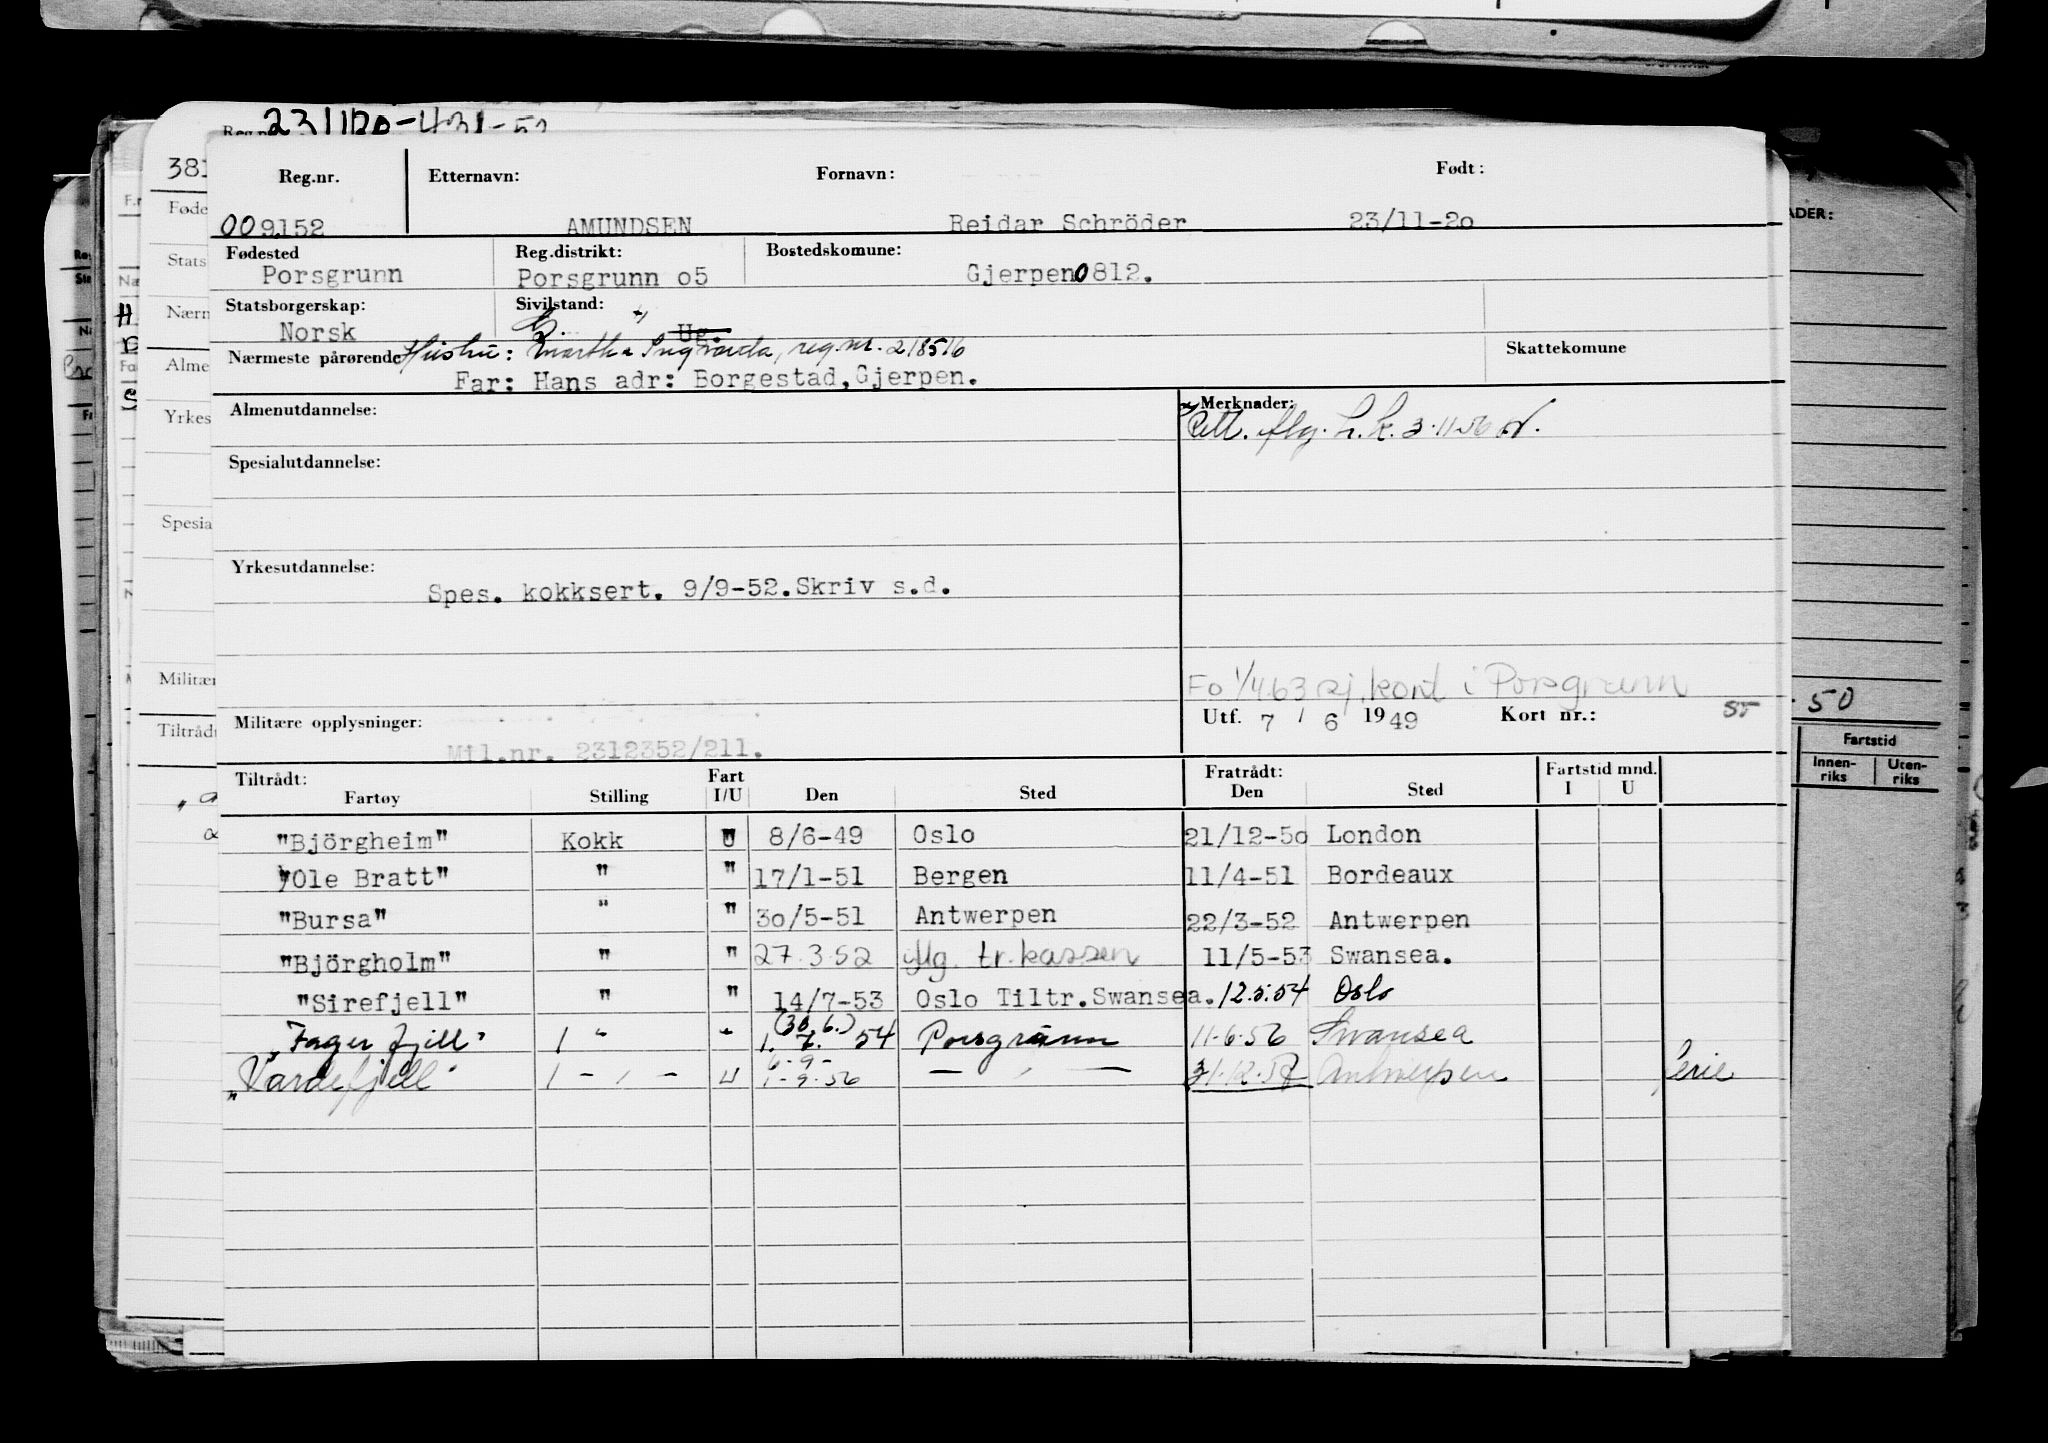 231120-431-52
Reg.nr. Etternavn: Fornavn: Født:
009152 AMUNDSEN Reidar Schröder 23/11-2o
Fødested Reg.distrikt: Bostedskomune:
Porsgrunn Porsgrunn o5 Gjerpen 0812.
Statsborgerskap: Sivilstand:
Norsk G. Ug.
Nærmeste pårørende Hustru: Martha Ingvarda, reg.nr. 218516 Skattekomune
Far: Hans adr: Borgestad, Gjerpen.
Almenutdannelse: Merknader:
Rett. flg. h.k. 3.11-56
Spesialutdannelse:
Yrkesutdannelse:
Spes. kokksert. 9/9-52. Skriv s.d.
Fo 1/4.63 sj. kont i Porsgrunn
Militære opplysninger: Utf. 7 / 6 1949 Kort nr.: 55
Mil.nr. 2312352/211.
Tiltrådt: Fart Fratrådt: Fartstid mnd.
Fartøy Stilling I/U Den Sted Den Sted I U
"Björgheim" Kokk U 8/6-49 Oslo 21/12-5o London
"Ole Bratt" " " 17/1-51 Bergen 11/4-51 Bordeaux
"Bursa" " " 3o/5-51 Antwerpen 22/3-52 Antwerpen
"Björgholm" " " 27.3.52 Mg. tr. kassen 11/5-53 Swansea.
"Sirefjell" " " 14/7-53 Oslo Tiltr. Swansea. 12.5.54 Oslo
(30.6.)
"Fagerfjell" 1 " " 1.7.54 Porsgrunn 11.6.56 Swansea
6-9-
"Vardefjell" 1 - " - U 1-9-56 — " — 31.12.58 Antwerpen
381
Føde
Stats
Nærn
Alme
Yrkes
Spesia
Militær
Tiltrådt
ADER:
50
Fartstid
Innen-riks Uten-riks